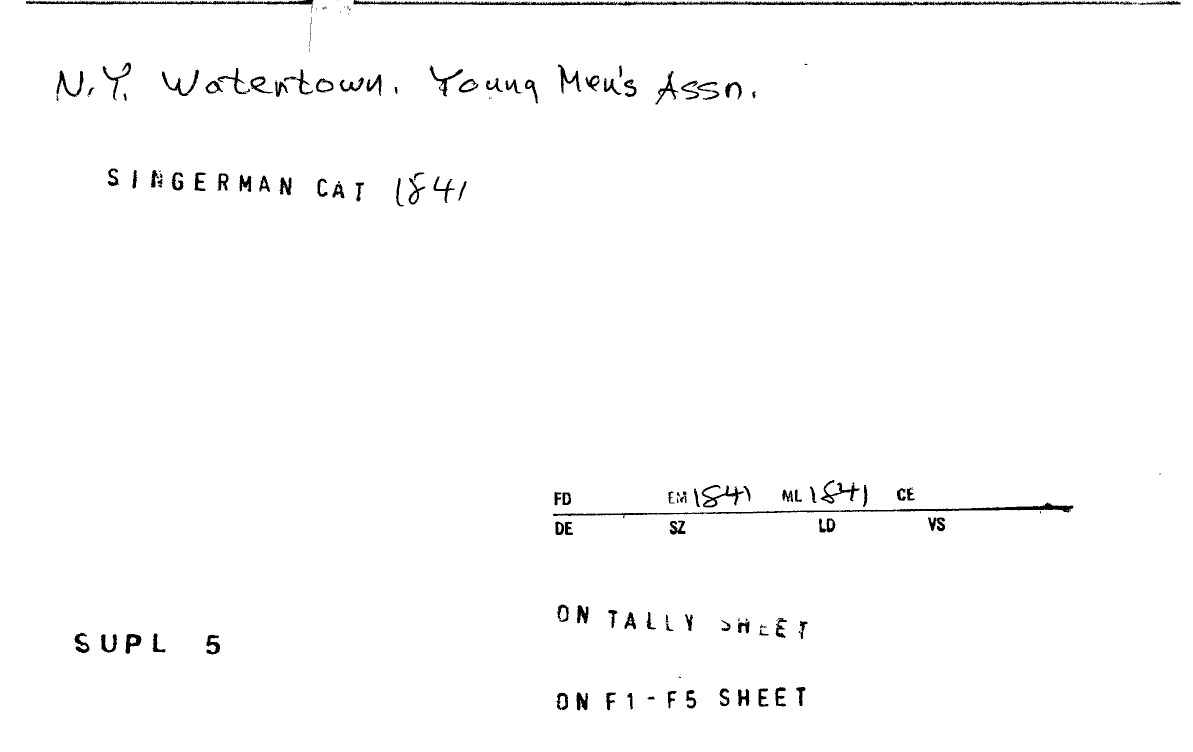 N.Y. Watertown. Young Men's Assn.
SINGERMAN CAT 1841
FD EM 1841 ML 1841 CE
DE SZ LD VS
ON TALLY SHEET
SUPL 5
ON F1-F5 SHEET